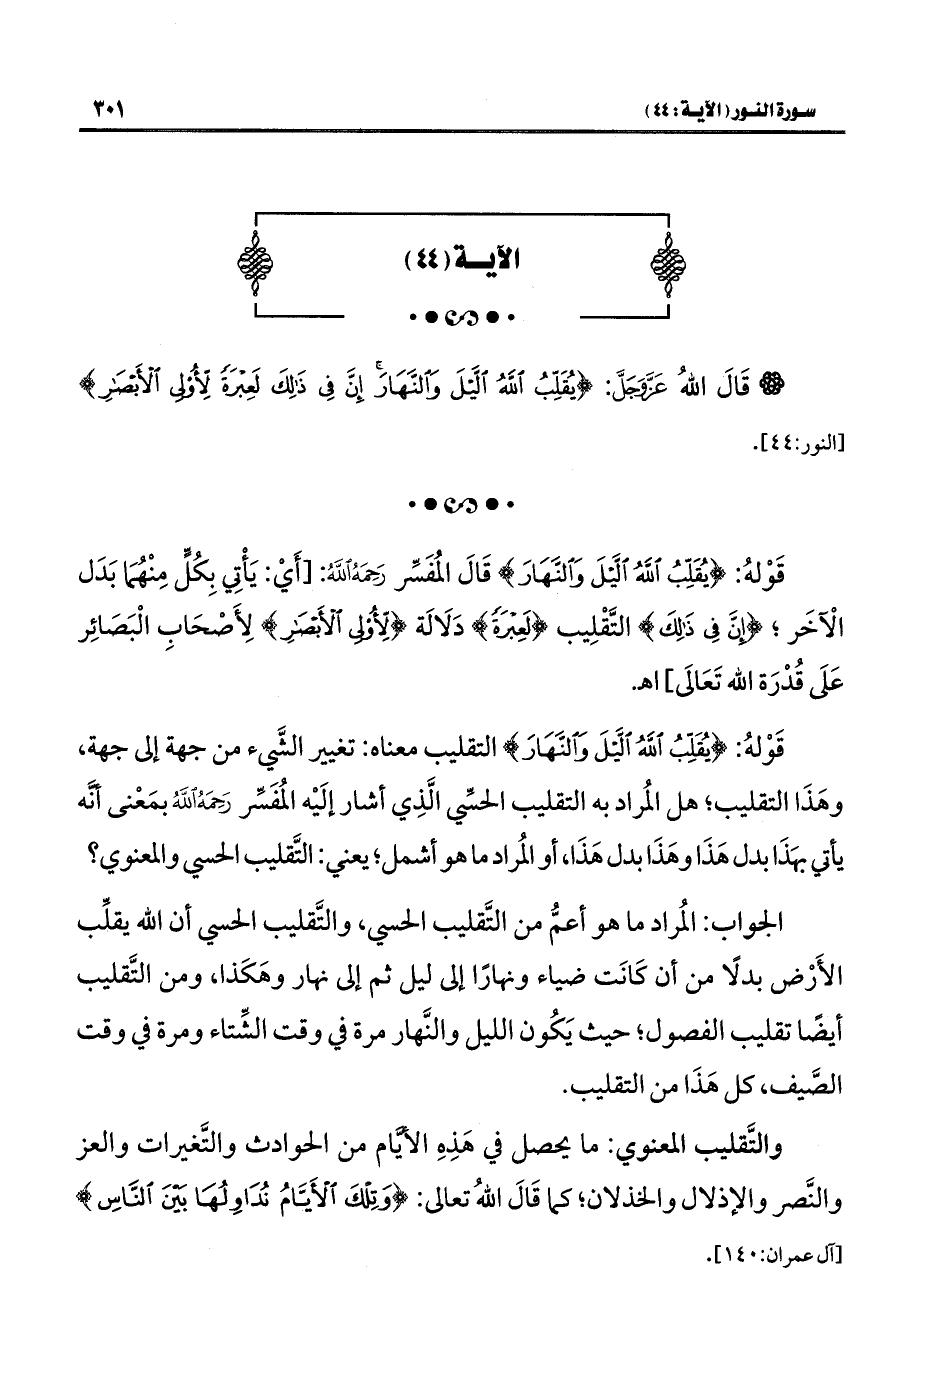 سورة النور (الآية: ٤٤) ٣٠١
الآية (٤٤)
قَالَ اللهُ عَزَّوَجَلَّ: ﴿يُقَلِّبُ ٱللَّهُ ٱلَّيْلَ وَٱلنَّهَارَ ۚ إِنَّ فِى ذَٰلِكَ لَعِبْرَةً لِّأُوْلِى ٱلْأَبْصَٰرِ﴾
[النور:٤٤].
قَوْلهُ: ﴿يُقَلِّبُ ٱللَّهُ ٱلَّيْلَ وَٱلنَّهَارَ﴾ قَالَ المُفَسِّر رَحِمَهُ اللَّهُ: [أَيْ: يَأْتِي بِكُلٍّ مِنْهُمَا بَدَل
الْآخَر ؛ ﴿إِنَّ فِى ذَٰلِكَ﴾ التَّقْلِيب ﴿لَعِبْرَةً﴾ دَلَالَة ﴿لِّأُوْلِى ٱلْأَبْصَٰرِ﴾ لِأَصْحَابِ الْبَصَائِر
عَلَى قُدْرَة الله تَعَالَى] اهـ.
قَوْلهُ: ﴿يُقَلِّبُ ٱللَّهُ ٱلَّيْلَ وَٱلنَّهَارَ﴾ التقليب معناه: تغيير الشَّيء من جهة إلى جهة،
وهَذَا التقليب؛ هل المُراد به التقليب الحسِّي الَّذِي أشار إلَيْه المُفَسِّر رَحِمَهُ اللَّهُ بمَعْنى أنَّه
يأتي بهَذَا بدل هَذَا وهَذَا بدل هَذَا، أو المُراد ما هو أشمل؛ يعني: التَّقليب الحسي والمعنوي؟
الجواب: المُراد ما هو أعمُّ من التَّقليب الحسي، والتَّقليب الحسي أن الله يقلِّب
الأَرْض بدلًا من أن كَانَت ضياء ونهارًا إلى ليل ثم إلى نهار وهَكَذا، ومن التَّقليب
أيضًا تقليب الفصول؛ حيث يَكُون الليل والنَّهار مرة في وقت الشِّتاء ومرة في وقت
الصَّيف، كل هَذَا من التقليب.
والتَّقليب المعنوي: ما يحصل في هَذِهِ الأيَّام من الحوادث والتَّغيرات والعز
والنَّصر والإذلال والخذلان؛ كما قَالَ اللهُ تعالى: ﴿وَتِلْكَ ٱلْأَيَّامُ نُدَاوِلُهَا بَيْنَ ٱلنَّاسِ﴾
[آل عمران:١٤٠].